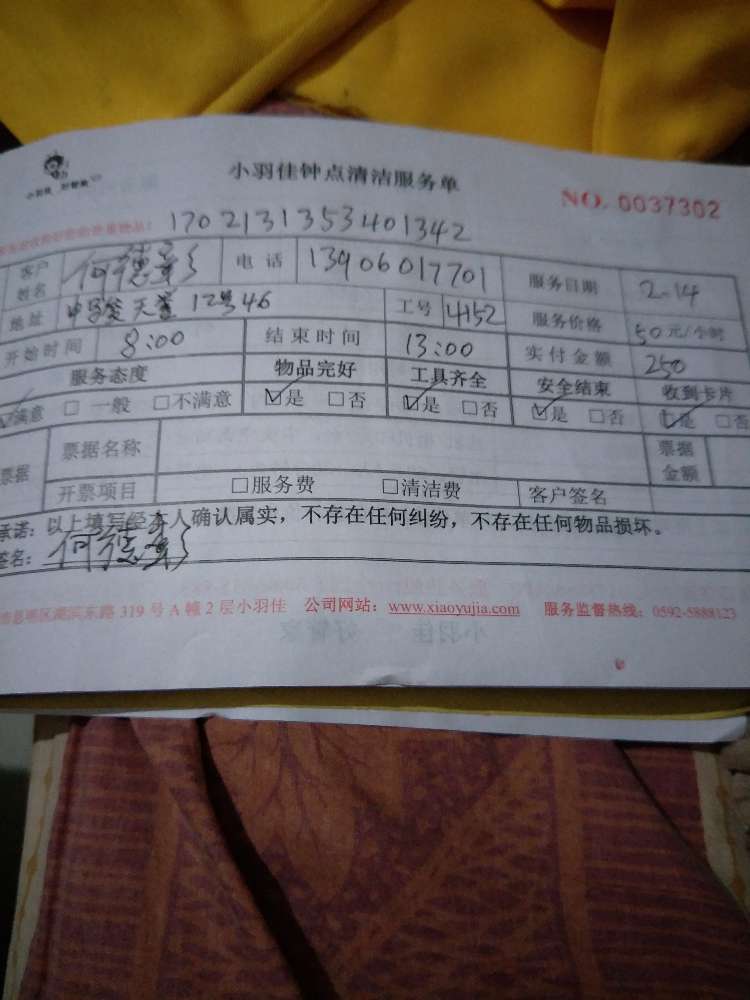 小羽佳钟点清洁服务单
小羽佳 好管家
NO. 0037302
1702131353401342
客户姓名 何德彰 电话 13906017701 服务日期 2-14
地址 天 12号46 工号 4152 服务价格 50元/小时
开始时间 8:00 结束时间 13:00 实付金额 250
服务态度 物品完好 工具齐全 安全结束 收到卡片
☑满意 □一般 □不满意 ☑是 □否 ☑是 □否 ☑是 □否 ☑是 □否
票据 票据名称 票据金额
开票项目 □服务费 □清洁费 客户签名
承诺：以上填写经本人确认属实，不存在任何纠纷，不存在任何物品损坏。
签名：何德彰
湖滨东路 319 号 A 幢 2 层小羽佳 公司网站：www.xiaoyujia.com 服务监督热线：0592-5888123